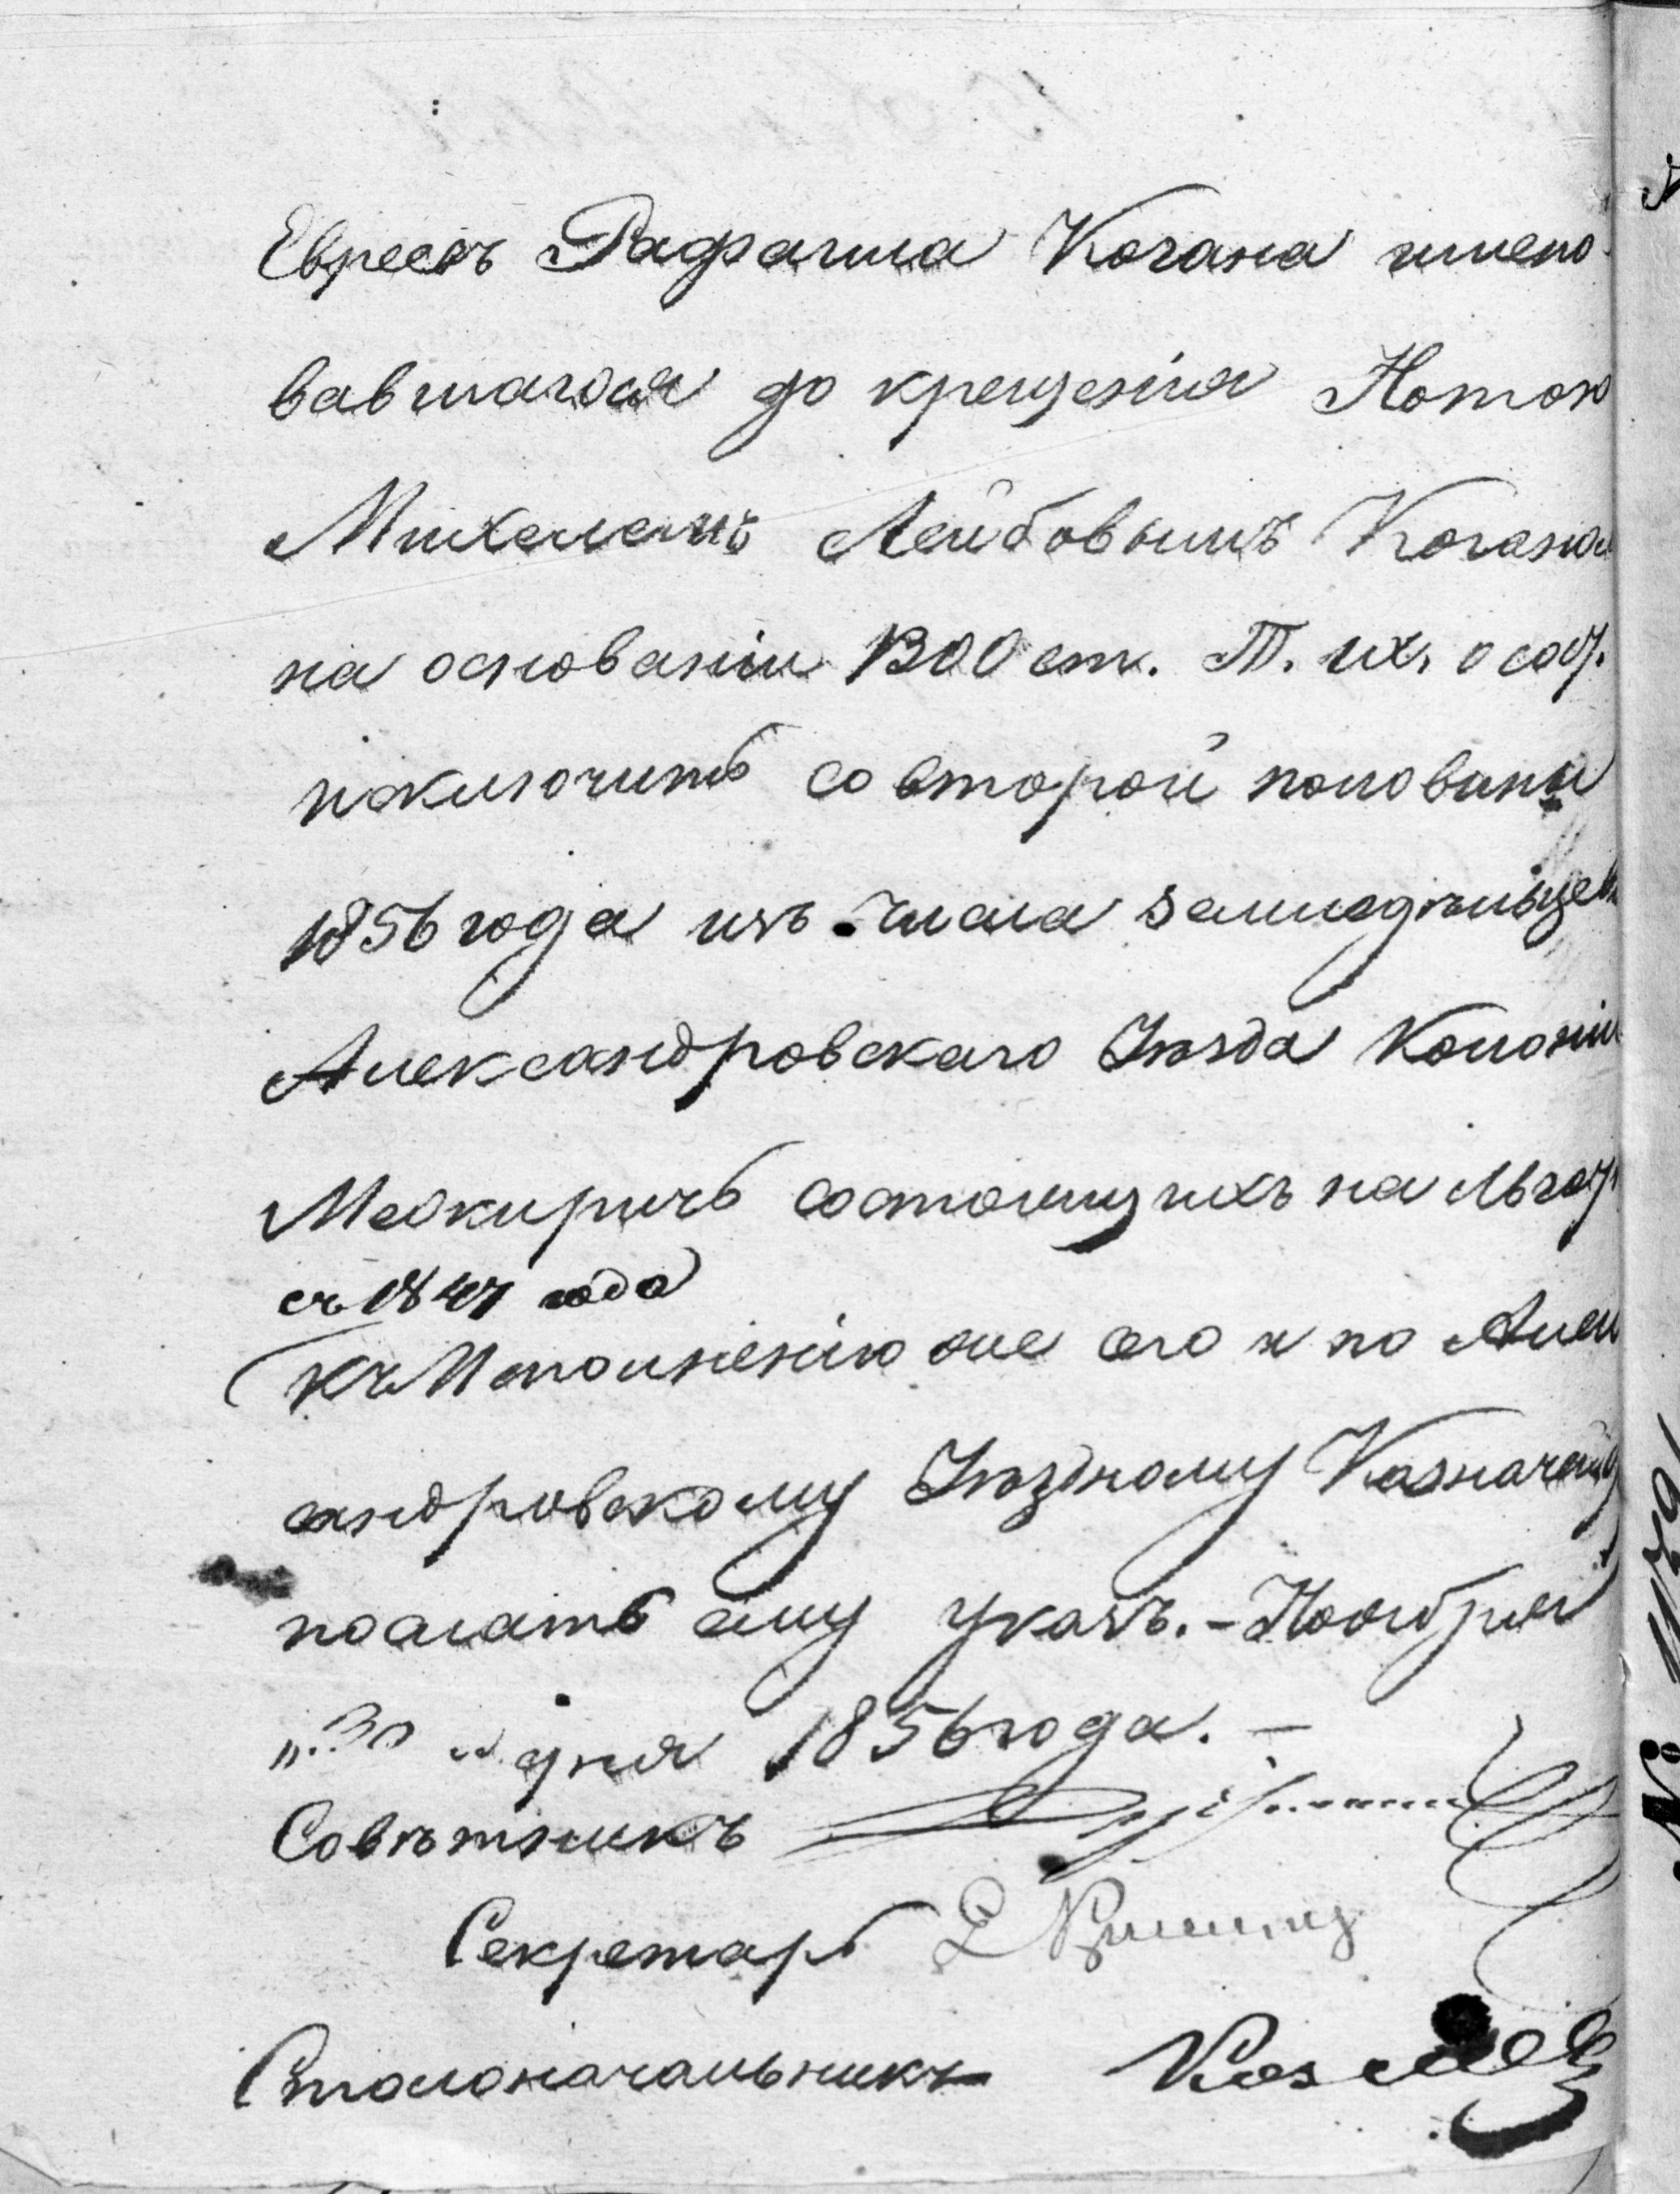 Евреевъ Рафаила Когана имено-
вавшагося до крещенія Нотою
Михелемъ Лейбовымъ Коганом
на основаніи 1300 ст. Т. IX. о сос.
исключить со второй половины
1856 года изъ числа земледѣльцевъ
Александровскаго Уѣзда Колоніи
Межиричь состоящихъ на льготѣ
съ 1847 года
къ Исполненію же сего и по Алек
сандровскому Уѣздному Казначейству
послать ему указъ. – Ноября
„30“ дня 1856 года. –
Совѣтникъ
Секретарь
Столоначальникъ
№